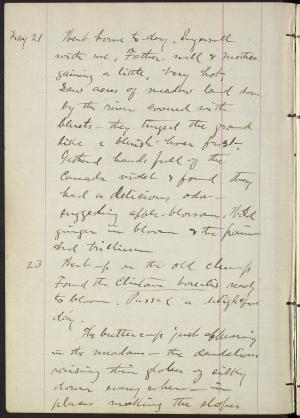 May 21 Went home to-day. Ingersoll
with me, Father well & Mother
gaining a little, very hot,
Saw acres of meadow land down
by the river covered with
bluets – they tinged the ground
like a bluish hoar frost.
Gathered hands full of the
Canada violet & found they
had a delicious odor
suggesting apple-blossom. Wild
ginger in bloom & the painted
trillium
23 Went up in the old
Found the Clintonia borealis ready
to bloom. Passed a delightful
day.
The buttercup just appearing
in the meadows – the dandelions
raising their globes of silky
down every where – in
places making the slopes